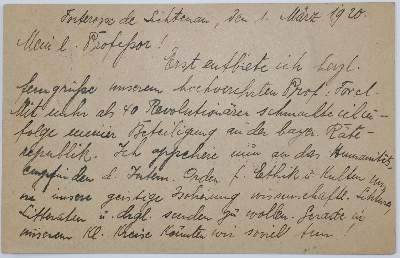 Festung Lichtenau, den 1. März 1920.
Mein l. Professor!
Erst entbiete ich herzl.
unserem hochverehrten Prof. Forel.
Mit mehr als 40 Revolutionären schmachte ich in-
folge meiner Beteiligung an der bayer. Räte-
republik. Ich appeliere nun an das Humanitäts-
empfinden d. Intern. Orden f. Ethik u. Kultur uns
wissenschaftl.
Litteratur u. dergl. senden zu wollen. Gerade in
unserem kl. Kreise könnten wir soviel tun!